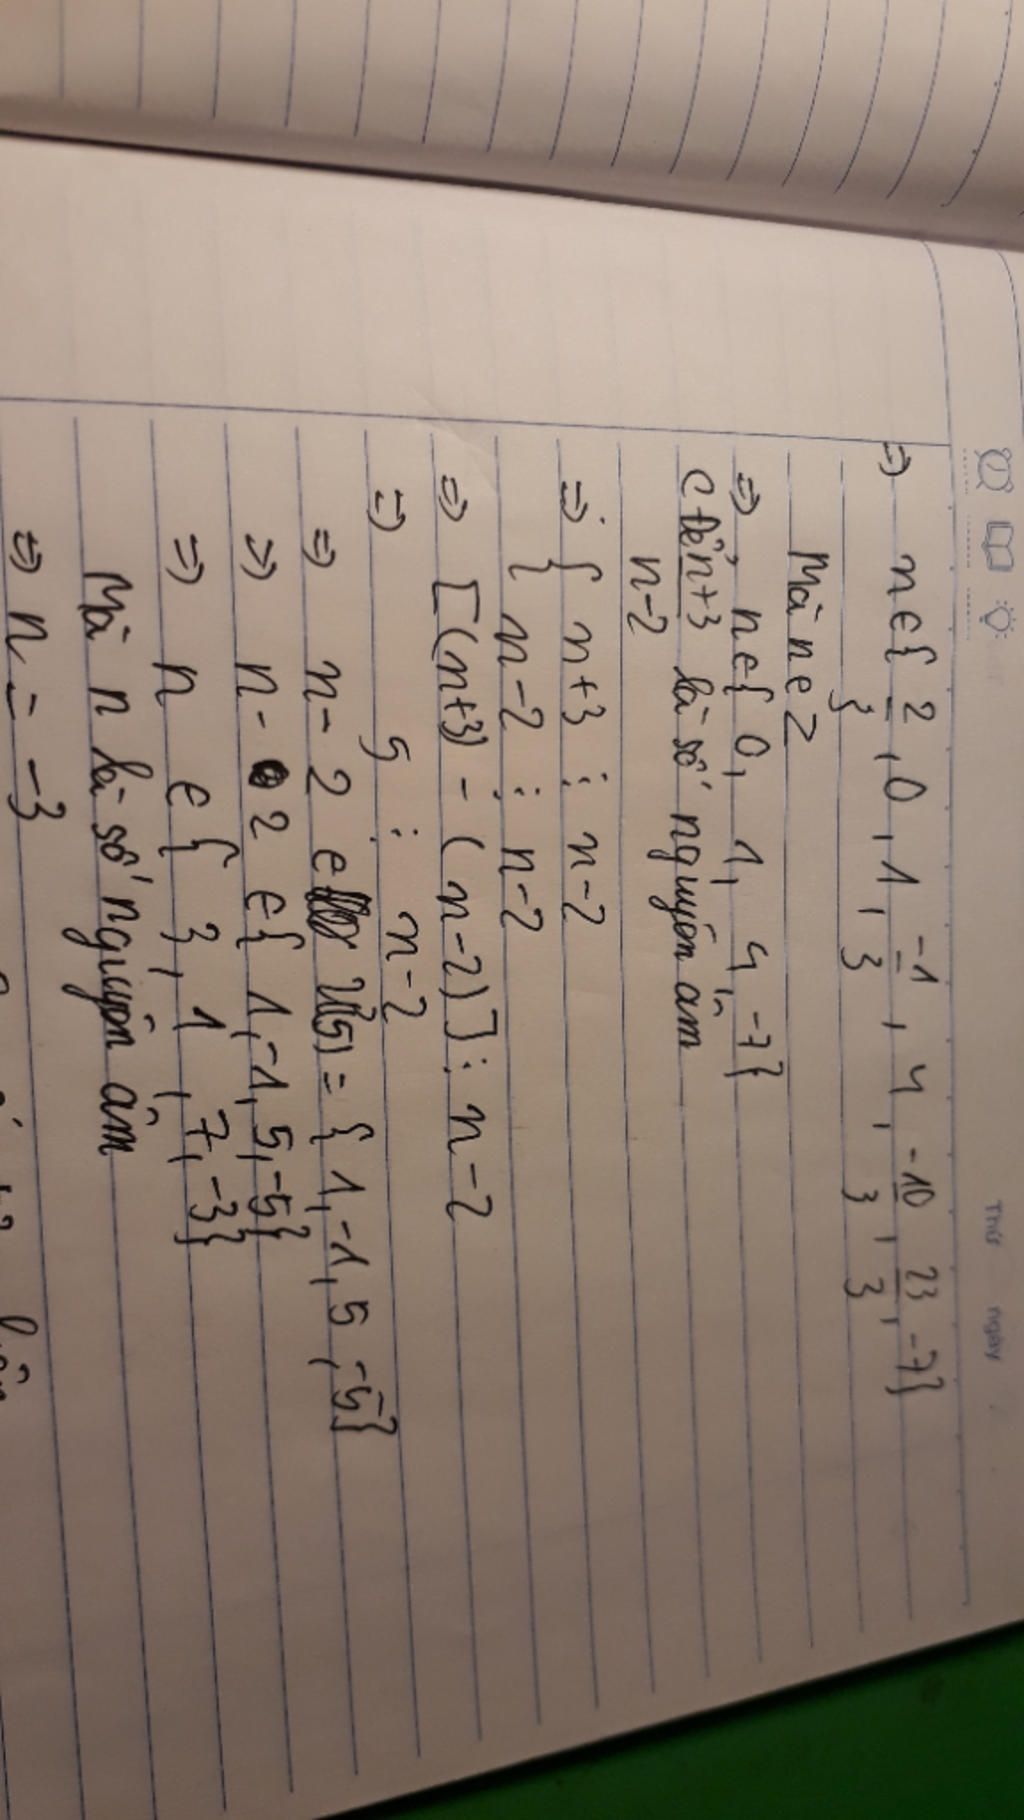 Thứ ngày
=> n ∈ { 2/3, 0, 1, -1/3, 4, -10/3, 23/3, -7}
Mà n ∈ Z
=> n ∈ { 0, 1, 4, -7}
c để n+3/n-2 là số nguyên âm
=> { n+3 ⋮ n-2
{ n-2 ⋮ n-2
=> [(n+3) - (n-2)] ⋮ n-2
=> 5 ⋮ n-2
=> n-2 ∈ Ư(5) = { 1, -1, 5, -5}
=> n-2 ∈ { 1, -1, 5, -5}
=> n ∈ { 3, 1, 7, -3}
Mà n là số nguyên âm
=> n = -3